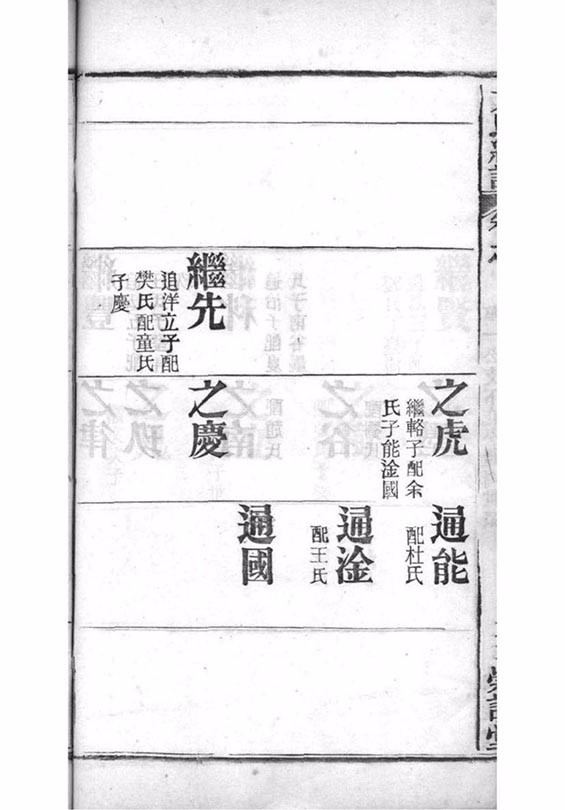 繼先
追洋立子配
樊氏配童氏
子慶
之虎
繼輅子配余
氏子能淦國
之慶
通能
配杜氏
通淦
配王氏
通國